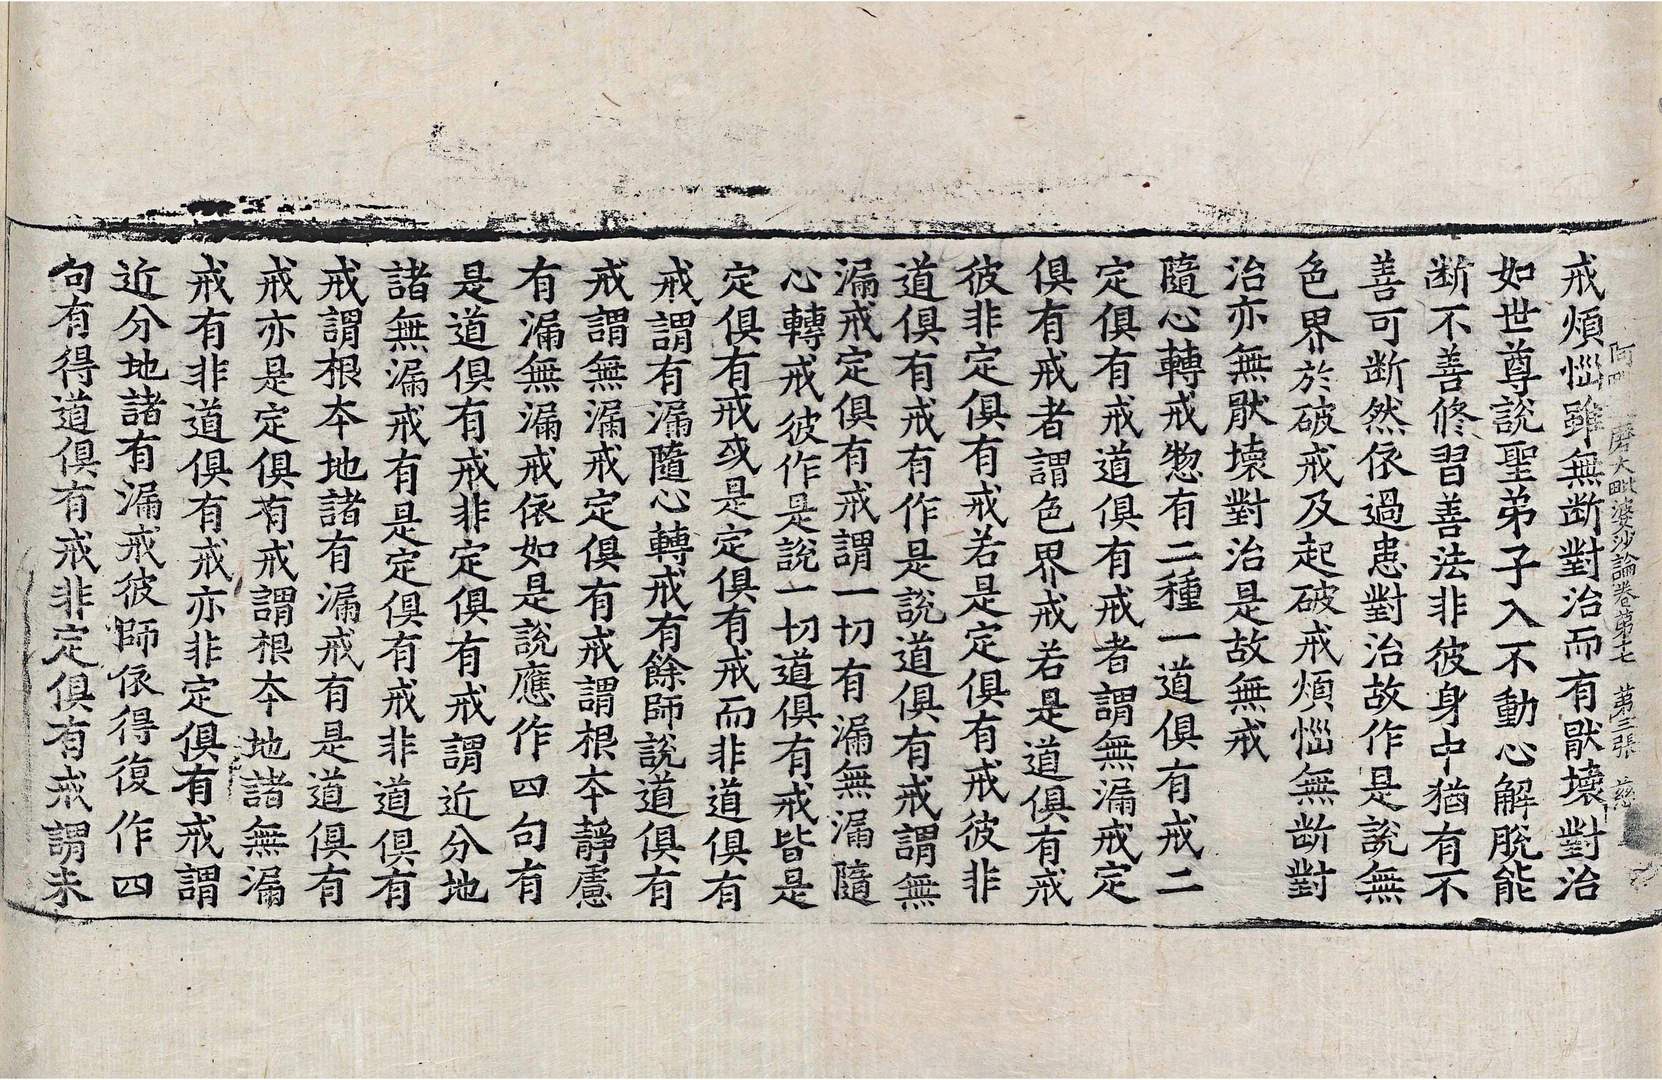 阿 磨大毗婆沙論卷第十七 第三張 慈
戒煩惱雖無斷對治而有猒壞對治
如世尊說聖弟子入不動心解脫能
斷不善修習善法非彼身中猶有不
善可斷然依過患對治故作是說無
色界於破戒及起破戒煩惱無斷對
治亦無猒壞對治是故無戒
隨心轉戒惣有二種一道俱有戒二
定俱有戒道俱有戒者謂無漏戒定
俱有戒者謂色界戒若是道俱有戒
彼非定俱有戒若是定俱有戒彼非
道俱有戒有作是說道俱有戒謂無
漏戒定俱有戒謂一切有漏無漏隨
心轉戒彼作是說一切道俱有戒皆是
定俱有戒或是定俱有戒而非道俱有
戒謂有漏隨心轉戒有餘師說道俱有
戒謂無漏戒定俱有戒謂根本靜慮
有漏無漏戒依如是說應作四句有
是道俱有戒非定俱有戒謂近分地
諸無漏戒有是定俱有戒非道俱有
戒謂根本地諸有漏戒有是道俱有
戒亦是定俱有戒謂根本地諸無漏
戒有非道俱有戒亦非定俱有戒謂
近分地諸有漏戒彼師依得復作四
句有得道俱有戒非定俱有戒謂未